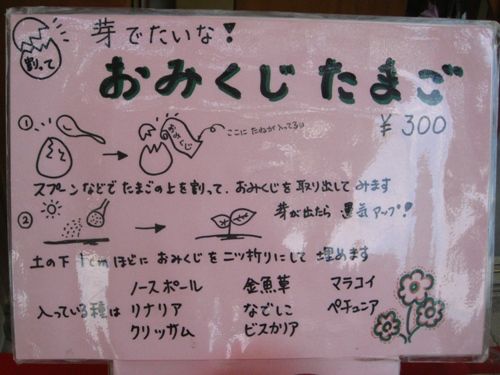 割って
芽でたいな!
おみくじ たまご
¥300
①
おみくじ
ここに たねが入ってるよ
スプーンなどで たまごの上を割って、おみくじを 取り出して みます
②
芽が出たら 運気アップ!
土の下 1cmほどに おみくじを 二ッ折りにして 埋めます
入っている種は
ノースポール 金魚草 マラコイ
リナリア なでしこ ペチュニア
クリッサム ビスカリア